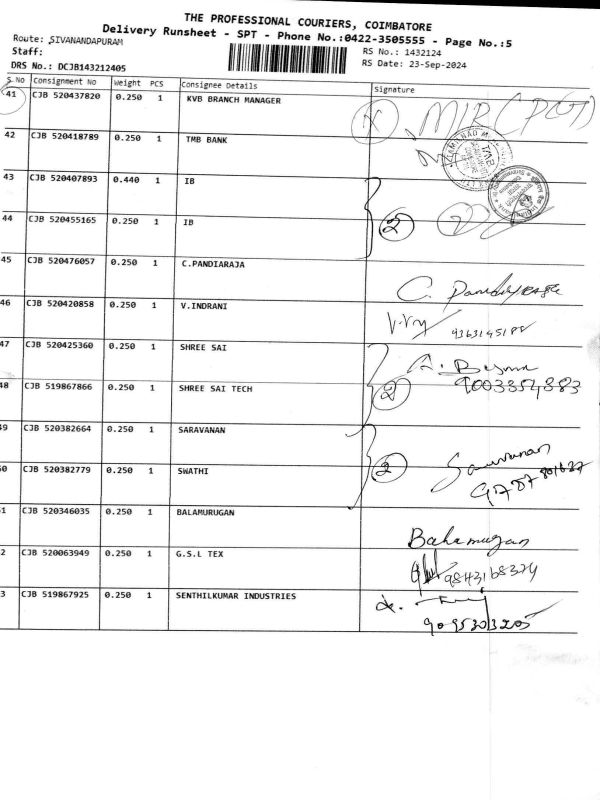 THE PROFESSIONAL COURIERS, COIMBATORE
Delivery Runsheet - SPT - Phone No.:0422-3505555 - Page No.:5
Route: SIVANANDAPURAM
RS No.: 1432124
Staff:
RS Date: 23-Sep-2024
DRS No.: DCJB143212405
S.No Consignment No Weight PCS Consignee Details Signature
41 CJB 520437820 0.250 1 KVB BRANCH MANAGER
42 CJB 520418789 0.250 1 TMB BANK
43 CJB 520407893 0.440 1 IB
44 CJB 520455165 0.250 1 IB 2
45 CJB 520476057 0.250 1 C.PANDIARAJA C.
46 CJB 520420858 0.250 1 V.INDRANI
47 CJB 520425360 0.250 1 SHREE SAI A.
48 CJB 519867866 0.250 1 SHREE SAI TECH 2 9003354883
49 CJB 520382664 0.250 1 SARAVANAN Saravanan
50 CJB 520382779 0.250 1 SWATHI 2
51 CJB 520346035 0.250 1 BALAMURUGAN
52 CJB 520063949 0.250 1 G.S.L TEX 9843168324
53 CJB 519867925 0.250 1 SENTHILKUMAR INDUSTRIES
9095303205